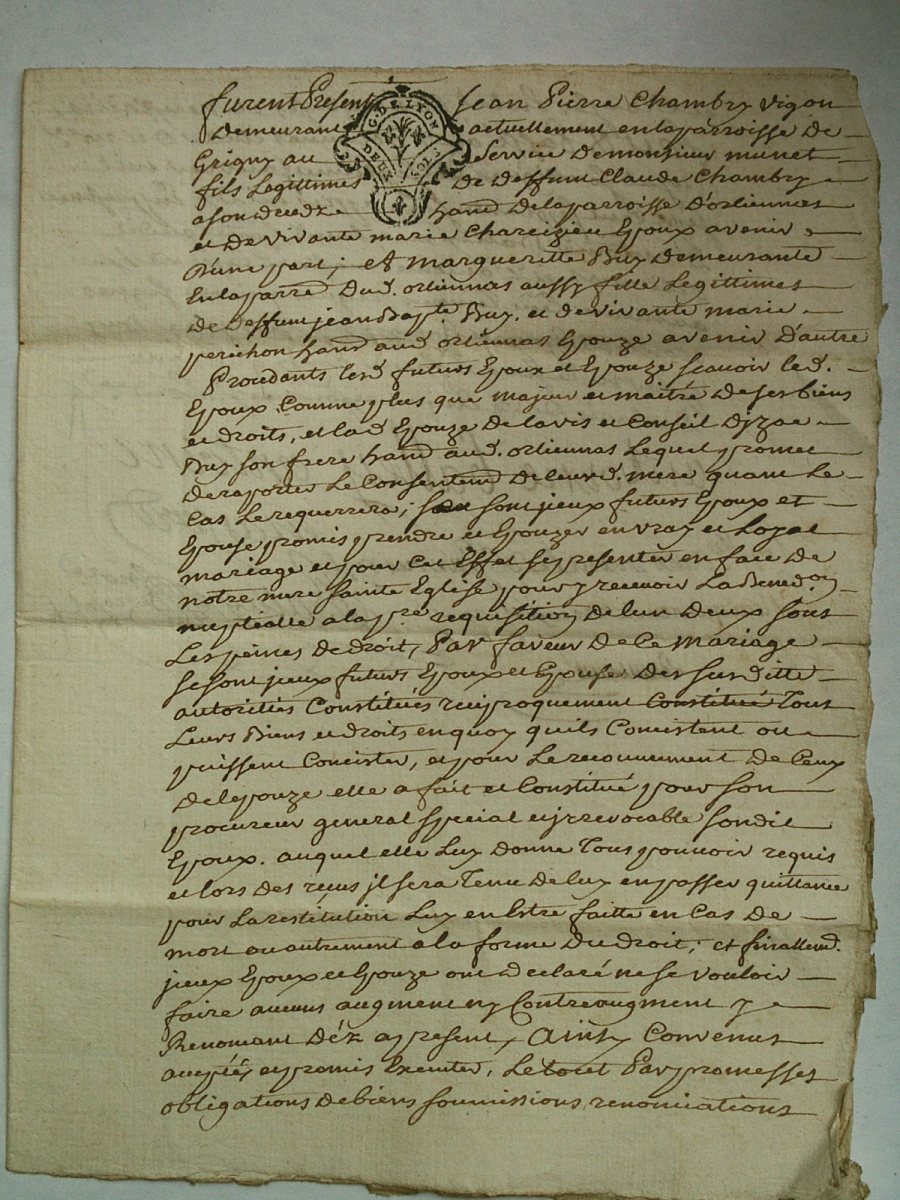 furent Present Jean Pierre Chambry vigon
G. DE LYON
DEUX SOLS
demeurant actuellement en laparroisse de
Grigny au service demonsieur munet
fils Legittimes de deffunt Claude Chambry
a son decedz hand delaparroisse d'orliennas
et de vivante marie Chareizieu Epoux avenir
d'une part; et margueritte Buy demeurante
En laparre dud. orliennas aussy fille Legittimes
de deffunt jean Bapte. Buy. et de vivante marie
perichon hand aud. orliennas Epouze avenir d'autre
Procedants lesd futurs Epoux et Epouze scavoir led.
Epoux Comme plus que majeur et maitre de ses biens
et droits, et lad Epouze de lavis et Conseil d'jzac
Buy son frere hand aud. orliennas Lequel promet
de raporter Le Consentemt de leurd. mere quant Le
Cas Le requerrera; se sont jceux futurs Epoux et
Epouse promis prendre et Epouzer en vray et Loyal
mariage et pour Cet Effet se presenter en face de
notre mere sainte Eglise pour y recevoir La Bened.on
nuptialle a la pre. requisition de lun deux sous
Les peines de droit, Par faveur de ce mariage
se sont jceux futurs Epoux et Epouse des susditte
autorités Constitués reciproquement Constitué Tous
Leurs Biens et droits en quoy quils Concistent ou
puissent Concister, et pour Le recouvrement de Ceux
de lepouze elle a fait et Constitué pour son
procureur general special et jrrevocable son dit
Epoux. auquel elle Luy donne Tous pouvoir requis
et lors des reçus jl sera Tenu de luy en passer quittance
pour La restitution Luy en Estre faitte en Cas de
mort ou autrement a la forme du droit; et finallemt.
jceux Epoux et Epouze ont declaré ne se vouloir
faire aucuns augment ny Contreaugment y
Renoncant déz apresent, Ainsy Convenus
acceptés et promis Executer, Le tout Par promesses
obligations de biens soumissions renonciations